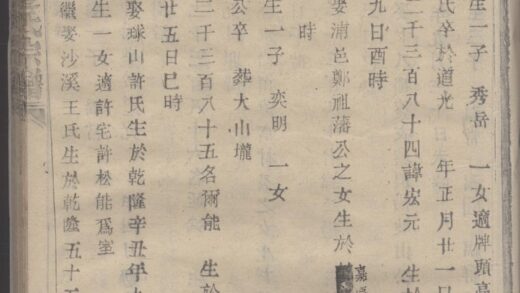 生一子 秀岳 一女適牌頭
氏卒於道光 年正月廿一日
二千三百八十四諱宏元 生於
九日酉時
娶浦邑鄭祖藩公之女生於
時
生一子 奕明 一女
公卒 葬大山壠
二千三百八十五名爾能 生於
廿五日巳時
娶球山許氏生於乾隆辛丑年
生一女適許宅許松能爲室
繼娶沙溪王氏生於乾隆五十